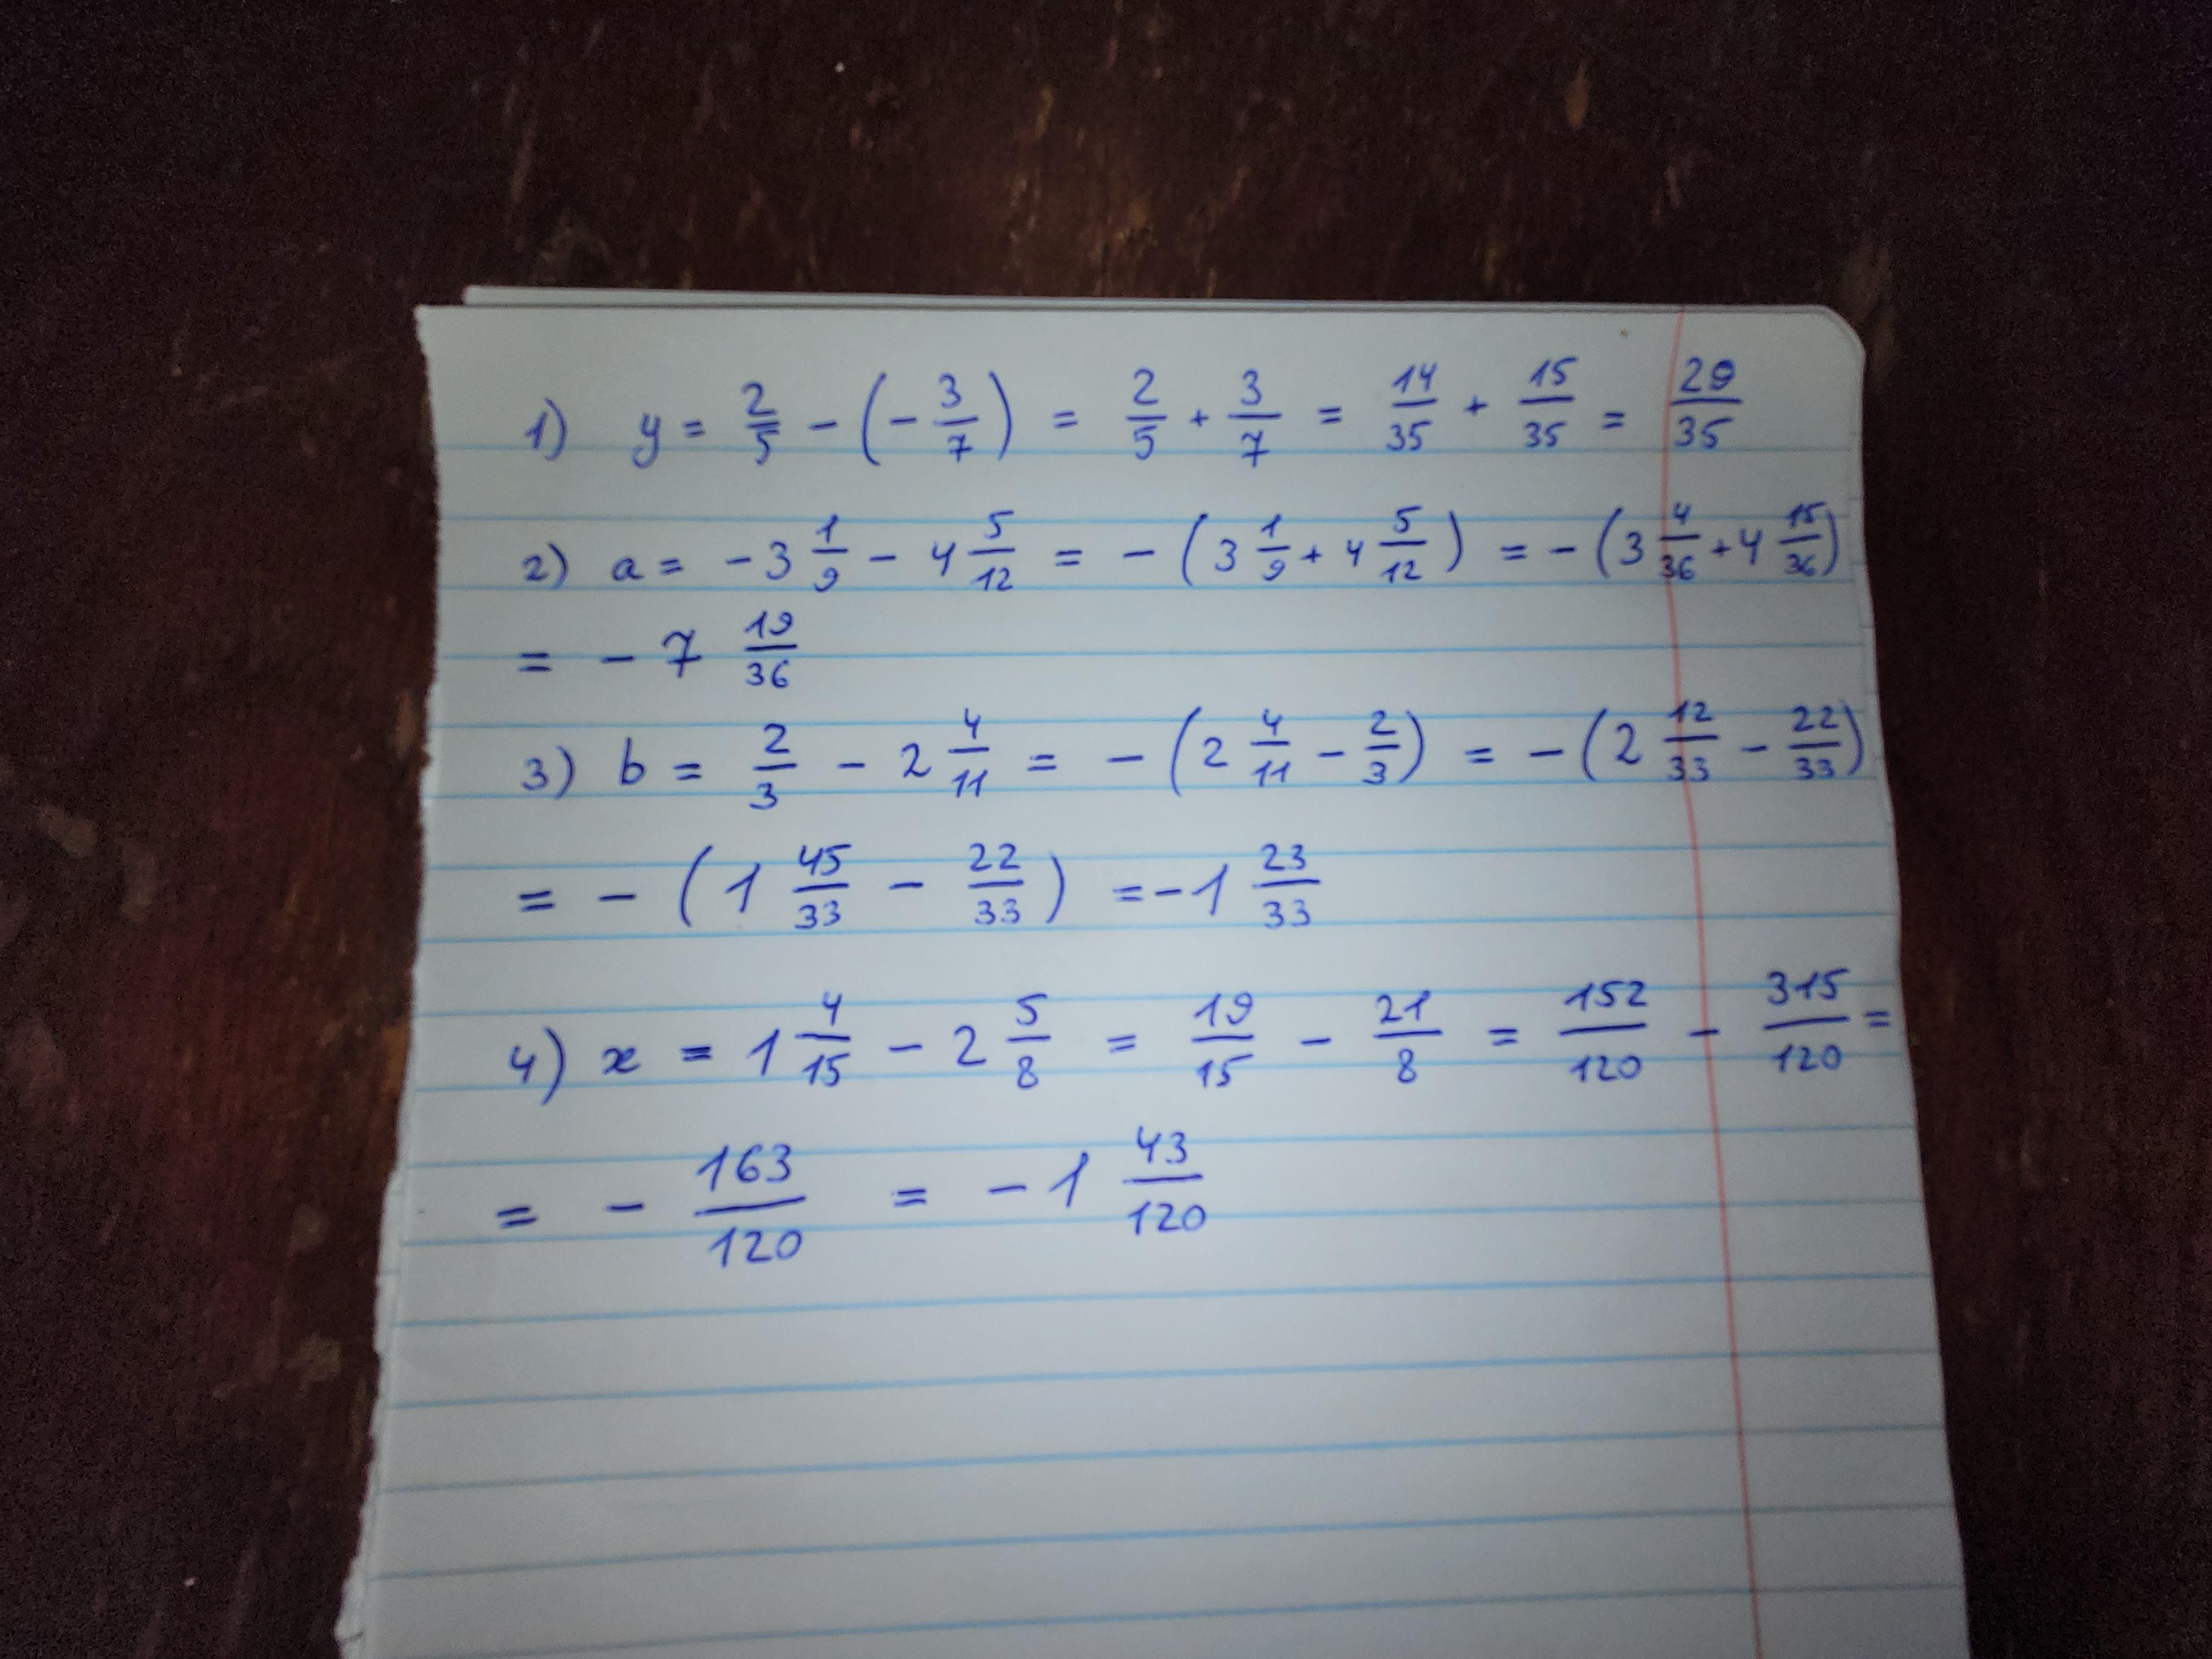 1) y = 2/5 - (- 3/7) = 2/5 + 3/7 = 14/35 + 15/35 = 29/35
2) a = - 3 1/9 - 4 5/12 = - (3 1/9 + 4 5/12) = - (3 4/36 + 4 15/36)
= - 7 19/36
3) b = 2/3 - 2 4/11 = - (2 4/11 - 2/3) = - (2 12/33 - 22/33)
= - (1 45/33 - 22/33) = - 1 23/33
4) x = 1 4/15 - 2 5/8 = 19/15 - 21/8 = 152/120 - 315/120 =
= - 163/120 = - 1 43/120